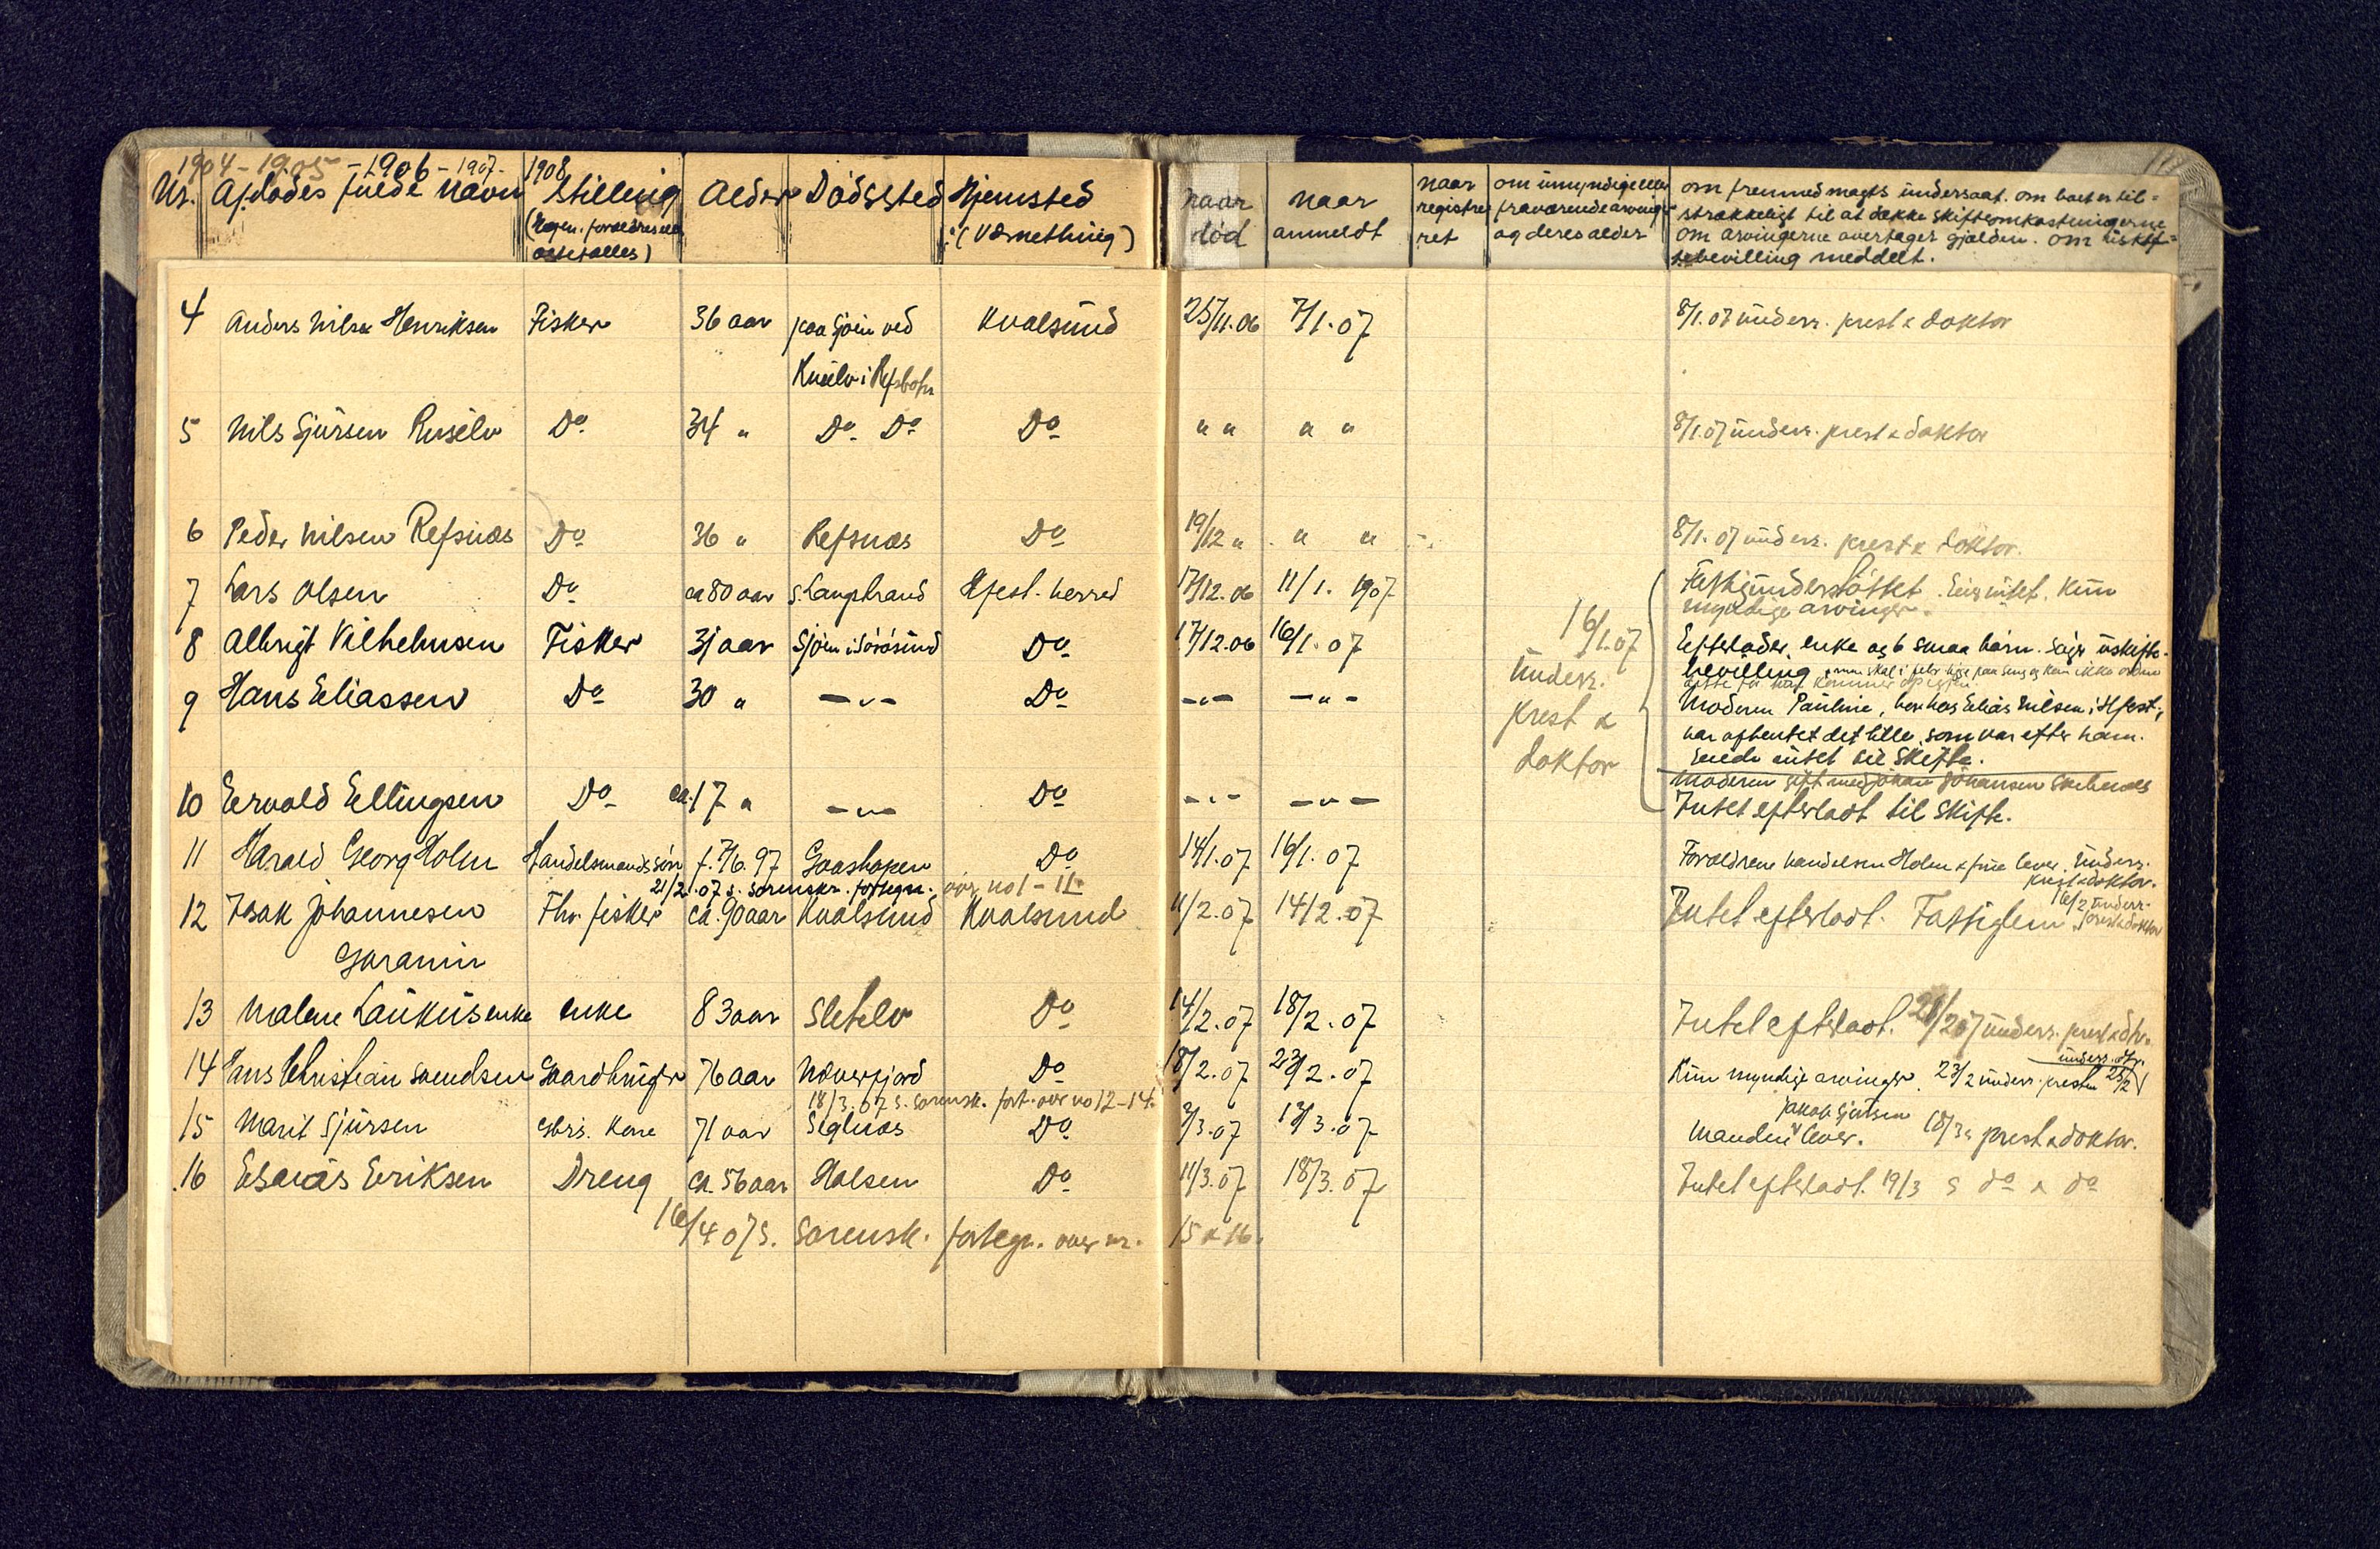 1904 - 1905 - 1906 - 1907 - 1908
Nr. Afdødes fulde navn Stilling Alder Dødssted Hjemsted naar død naar anmeldt naar registreret om umyndige eller fraværende arvinger og deres alder om fremmed magts undersaat. om boet er til-
strækkeligt til at dække skifteomkostningerne
om arvingerne overtager gjælden. om uskif-
tebevilling meddelt.
4 Anders Nilsen Henriksen Fisker 36 aar paa Sjøen ved Kvalsund 25/11.06 7/1.07 8/1.07 underr. prest & doktor
5 Nils Sjursen Do 34 " Do Do Do " " " " 8/1.07 underr. prest & doktor
6 Peder Nilsen Refsnæs Do 36 " Refsnæs Do 19/12 " " " 8/1.07 underr. prest & doktor.
7 Lars Olsen Do ca 80 aar S. Langstrand Hfest. herred 17/12.06 11/1.1907 Fattigunderstøttet. Eier intet. Kun
myndige arvinger.
8 Albrigt Vilhelmsen Fisker 31 aar Sjøen i Sørøsund Do 17/12.06 16/1.07 16/1.07 Efterlader enke og 6 smaa børn. Søger uskifte-
bevilling
9 Hans Eliassen Do 30 " - " - Do - " - - " - underr. prest & doktor Moderen Pauline, hos Elias Nilsen i Hfest.,
har afhentet det lille, som var efter ham.
intet til Skifte.
10 Eevald Ellingsen Do ca. 17 " - " - Do - " - - " - Moderen gift med Johan Johansen
Intet efterladt til Skifte.
11 Harald Georg Holm Handelsmandssøn f. 7/6.97 Gaashopen Do 14/1.07 16/1.07 Forældrene handelsm Holm & frue lever. Underr.
prest & doktor.
21/2.07 s. sorenskr. fortegn. over no 1 - 11.
12 Isak Johannesen Fhv. fisker ca. 90 aar Kvalsund Kvalsund 11/2.07 14/2.07 Intet efterladt. Fattiglem. 16/2 underr.
prest & doktor
13 Malene Laukus enke enke 83 aar Sletelv Do 14/2.07 18/2.07 Intet efterladt. 21/2 07 underr. prest & dr.
14 Hans Christian Svendsen Gaardbruger 76 aar Næverfjord Do 18/2.07 23/2.07 Kun myndige arvinger. 23/2 underr. presten underr. dr. 25/2
18/3.07 s. sorensk. fort. over no 12-14.
15 Marit Sjursen Gbrs. Kone 71 aar Seglnæs Do 3/3.07 13/3.07 Manden Jakob Sjursen lever. 18/3 s prest & doktor.
16 Esaias Eriksen Dreng ca. 56 aar Halsen Do 11/3.07 18/3.07 Intet efterladt. 19/3 s do & do
16/4 07 s. Sorensk. fortegn. over nr. 15 & 16.